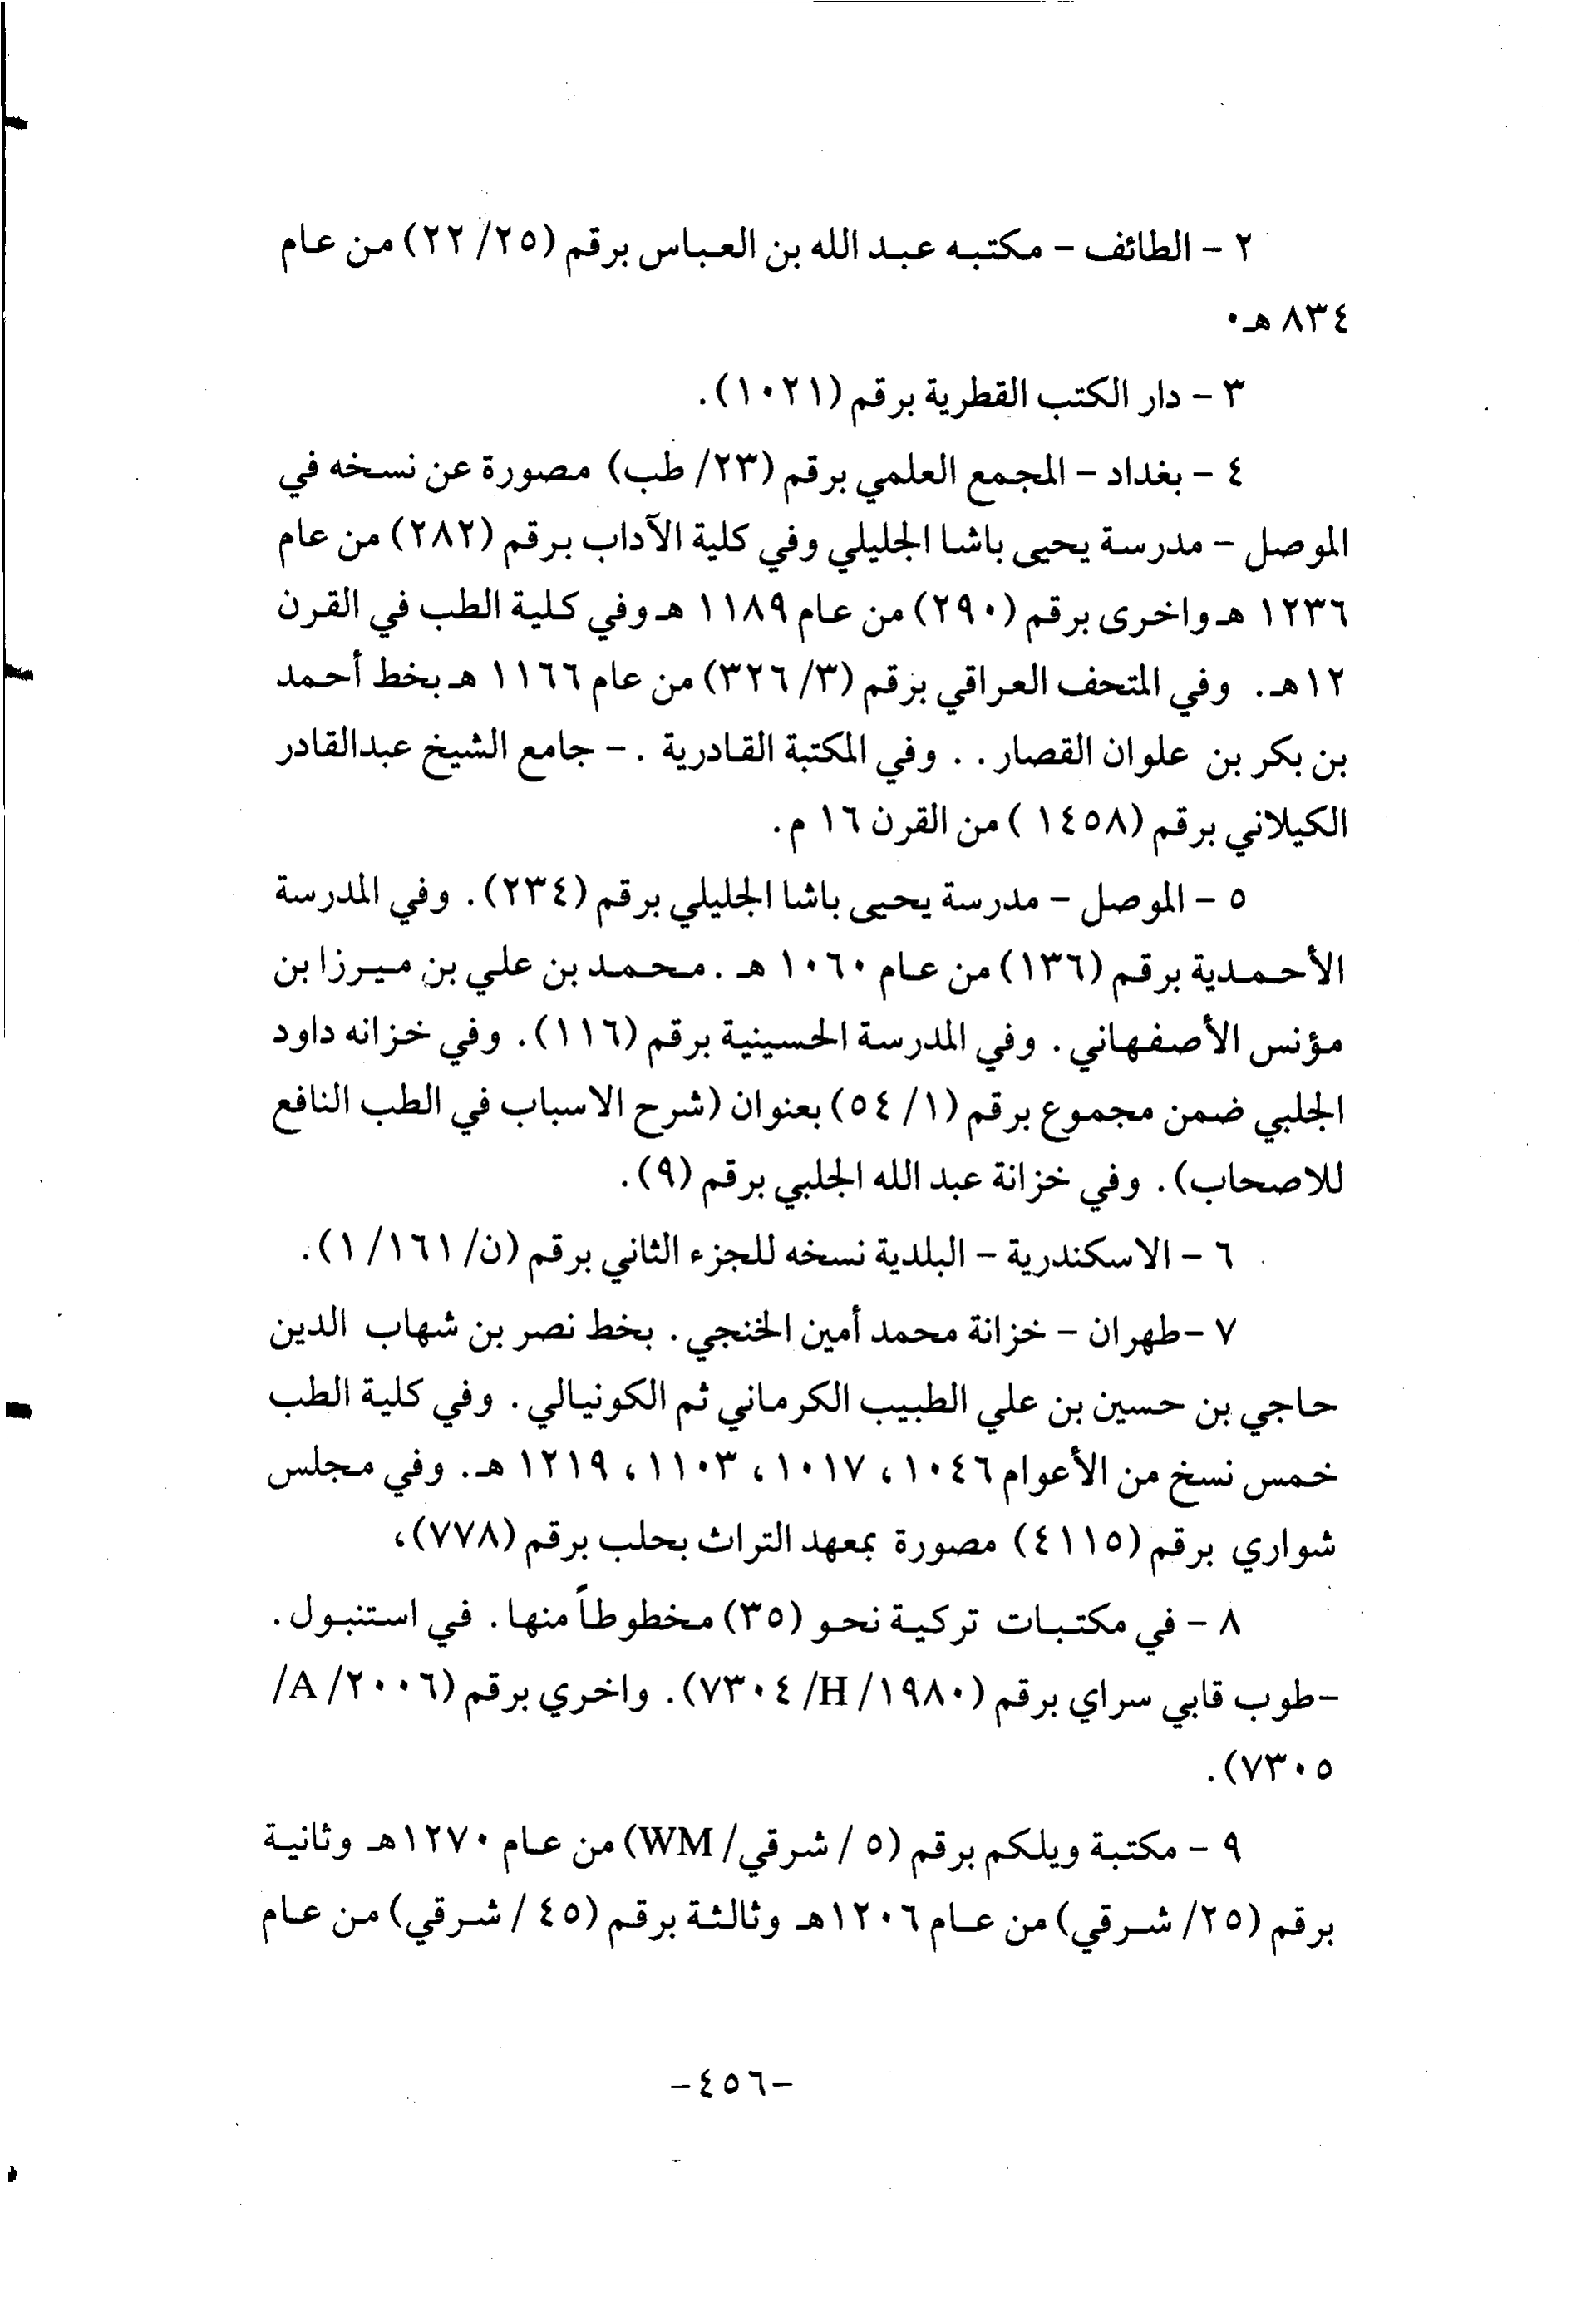 ٢ - الطائف - مكتبه عبد الله بن العباس برقم (٢٥/ ٢٢) من عام
٨٣٤ هـ٠
٣ - دار الكتب القطرية برقم (١٠٢١).
٤ - بغداد - المجمع العلمي برقم (٢٣/ طب) مصورة عن نسخه في
الموصل - مدرسة يحيى باشا الجليلي وفي كلية الآداب برقم (٢٨٢) من عام
١٢٣٦ هـ واخرى برقم (٢٩٠) من عام ١١٨٩ هـ وفي كلية الطب في القرن
١٢هـ. وفي المتحف العراقي برقم (٣/ ٣٢٦) من عام ١١٦٦ هـ بخط أحمد
بن بكر بن علوان القصار . . وفي المكتبة القادرية . - جامع الشيخ عبدالقادر
الكيلاني برقم (١٤٥٨ ) من القرن ١٦ م.
٥ - الموصل - مدرسة يحيى باشا الجليلي برقم (٢٣٤). وفي المدرسة
الأحمدية برقم (١٣٦) من عام ١٠٦٠ هـ . محمد بن علي بن ميرزا بن
مؤنس الأصفهاني. وفي المدرسة الحسينية برقم (١١٦). وفي خزانه داود
الجلبي ضمن مجموع برقم (١/ ٥٤) بعنوان (شرح الاسباب في الطب النافع
للاصحاب). وفي خزانة عبد الله الجلبي برقم (٩).
٦ - الاسكندرية - البلدية نسخه للجزء الثاني برقم (ن/ ١٦١/ ١).
٧ -طهران - خزانة محمد أمين الخنجي. بخط نصر بن شهاب الدين
حاجي بن حسين بن علي الطبيب الكرماني ثم الكونيالي. وفي كلية الطب
خمس نسخ من الأعوام ١٠٤٦، ١٠١٧، ١١٠٣، ١٢١٩ هـ. وفي مجلس
شواري برقم (٤١١٥) مصورة بمعهد التراث بحلب برقم (٧٧٨)،
٨ - في مكتبات تركية نحو (٣٥) مخطوطاً منها. في استنبول.
-طوب قابي سراي برقم (١٩٨٠/ H/ ٧٣٠٤). واخري برقم (٢٠٠٦/ A/
٧٣٠٥).
٩ - مكتبة ويلكم برقم (٥ / شرقي/ WM) من عام ١٢٧٠هـ وثانية
برقم (٢٥/ شرقي) من عام ١٢٠٦هـ وثالثة برقم (٤٥ / شرقي) من عام
-٤٥٦-